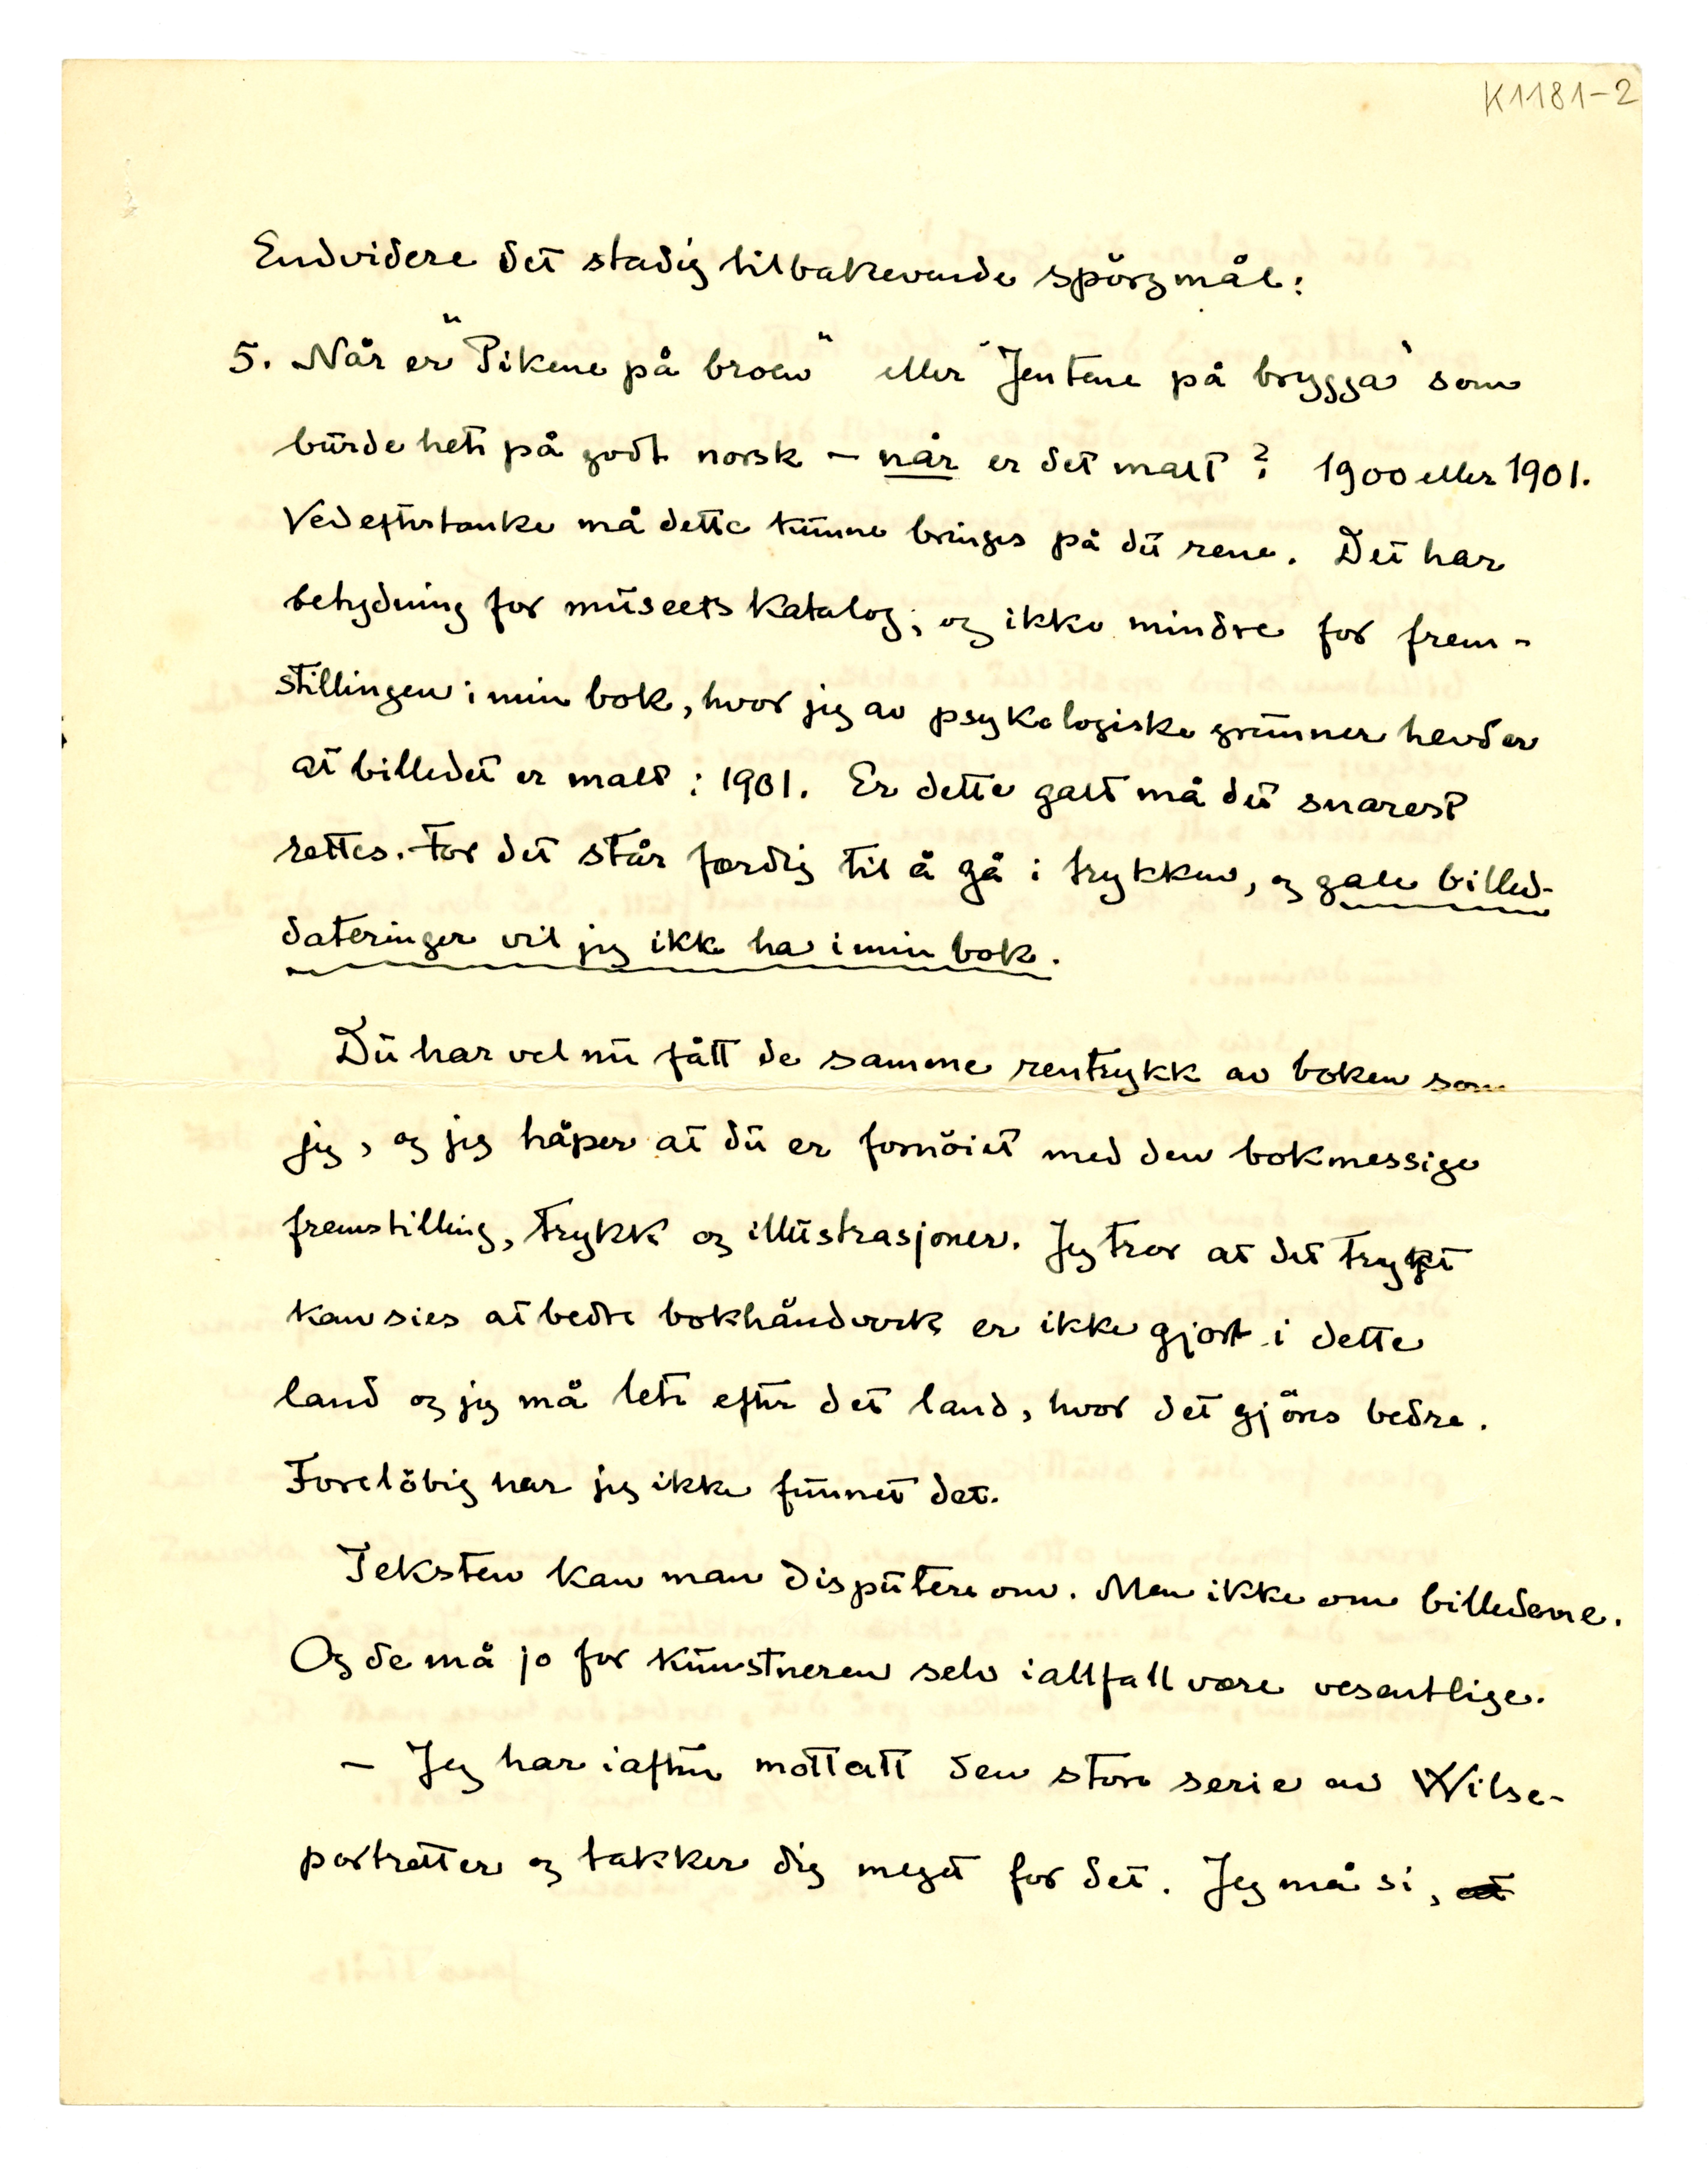 K1181-2
Endvidere det stadig tilbakevende spörgmål:
5. Når er "Pikene på broen" eller "Jentene på brygga" som
burde hete på godt norsk – når er det malt? 1900 eller 1901.
Ved eftertanke må dette kunne bringes på det rene. Det har
betydning for museets katalog, og ikke mindre for frem-
stillingen i min bok, hvor jeg av psykologiske grunner hevder
at billedet er malt i 1901. Er dette galt må det snarest
rettes. For det står færdig til å gå i trykken, og gale billed-
dateringer vil jeg ikke ha i min bok.
Du har vel nu fått de samme rentrykk av boken som
jeg, og jeg håper at du er fornöiet med den bokmessige
fremstilling, trykk og illustrasjoner. Jeg tror at det trygt
kan sies at bedre bokhåndverk er ikke gjort i dette
land og jeg må lete efter det land, hvor det gjöres bedre.
Forelöbig har jeg ikke funnet det.
Teksten kan man disputere om. Men ikke om billedene.
Og de må jo for kunstneren selv iallfall være vesentlige.
– Jeg har iaften mottatt den store serie av Wilse-
portretter og takker dig meget for det. Jeg må si, at